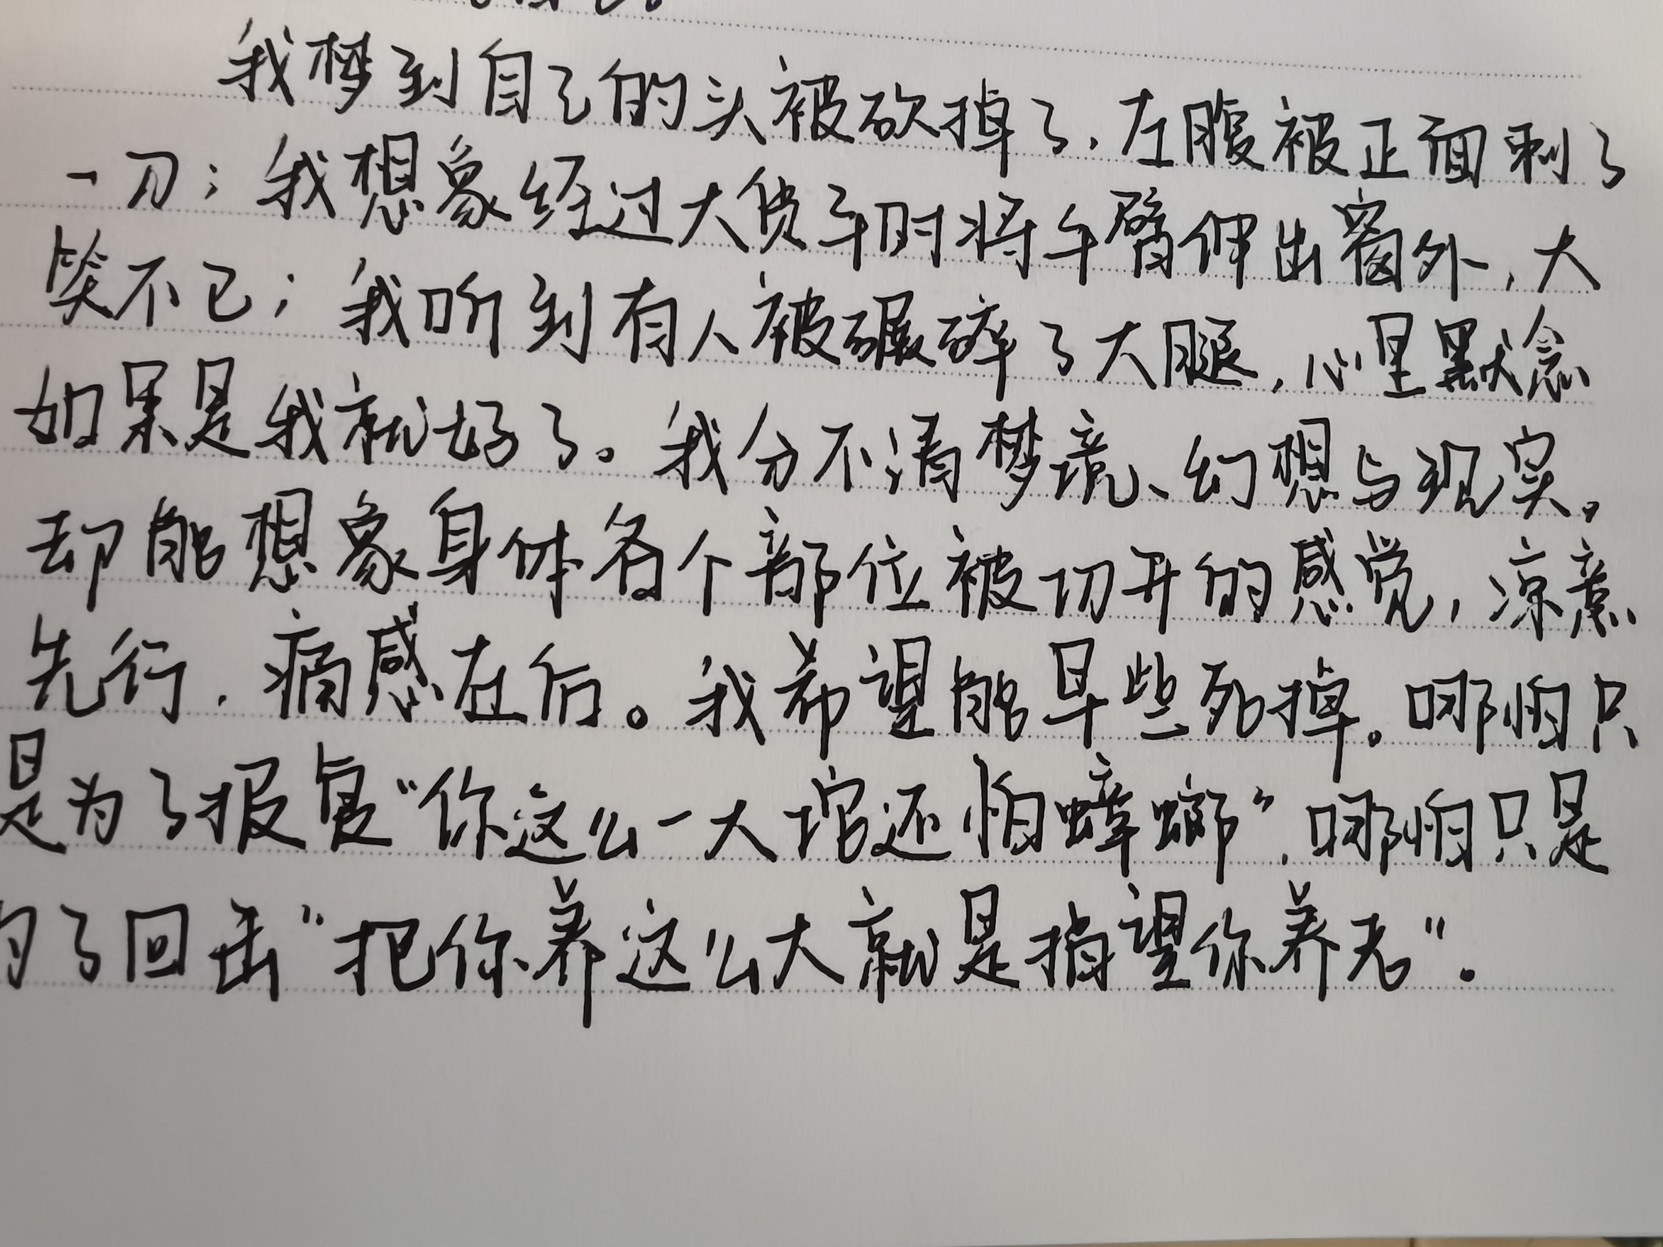 我梦到自己的头被砍掉了，左腹被正面刺了
一刀；我想象经过大货车时将手臂伸出窗外，大
笑不已；我听到有人被碾碎了大腿，心里默念
如果是我就好了。我分不清梦境、幻想与现实。
却能想象身体各个部位被切开的感觉，凉意
先行，痛感在后。我希望能早些死掉。哪怕只
是为了报复“你这么一大坨还怕蟑螂”，哪怕只是
为了回击“把你养这么大就是指望你养老”。